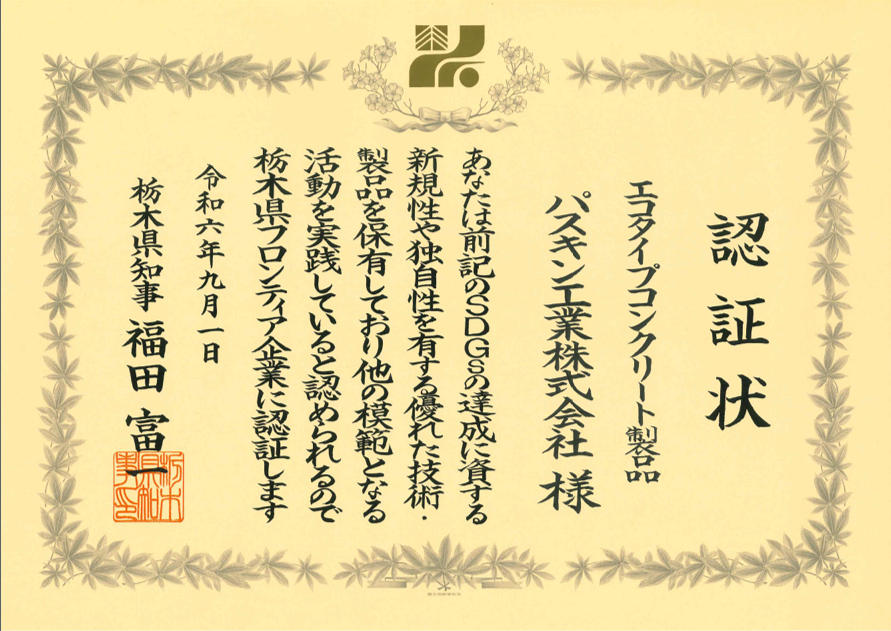 認証状
エコタイプコンクリート製品
パスキン工業株式会社 様
あなたは前記のSDGsの達成に資する
新規性や独自性を有する優れた技術・
製品を保有しており他の模範となる
活動を実践していると認められるので
栃木県フロンティア企業に認証します
令和六年九月一日
栃木県知事 福田 富一
栃木
県知
事印